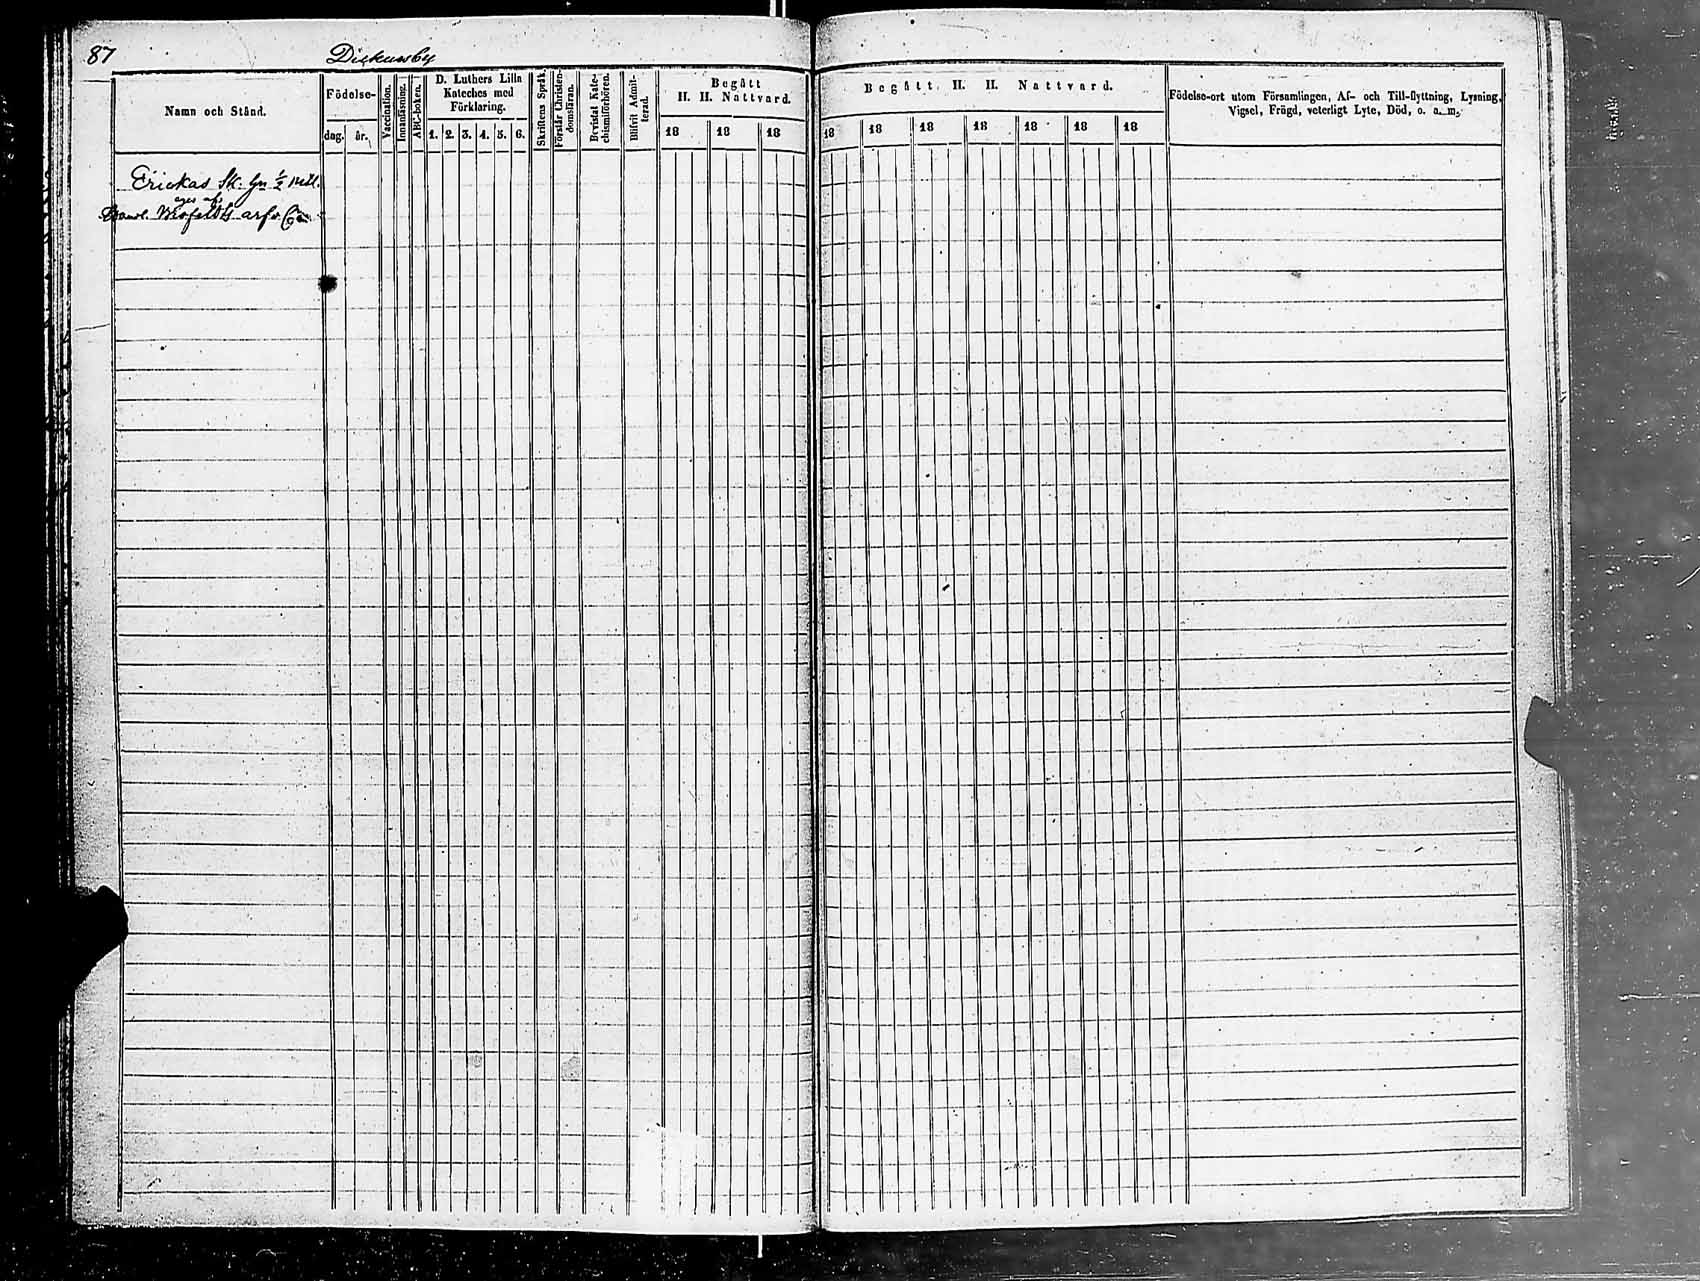 87 Dickursby
Namn och Stånd.
Födelse-
dag. år.
Vaccination.
Innanläsning.
ABC-boken.
D. Luthers Lilla
Kateches med
Förklaring.
1. 2. 3. 4. 5. 6.
Skriftens Språk.
Förstår Christen-
domsläran.
Bevistat Kate-
chismiförhören.
Blifvit Admit-
terad.
Begått
H. H. Nattvard.
18 18 18
Begått H. H. Nattvard.
18 18 18 18 18 18 18
Födelse-ort utom Församlingen, Af- och Till-flyttning, Lysning,
Vigsel, Frägd, veterligt Lyte, Död, o. a. m.
Erickas Sk. 1/2 mtl.
eges af
arfv.